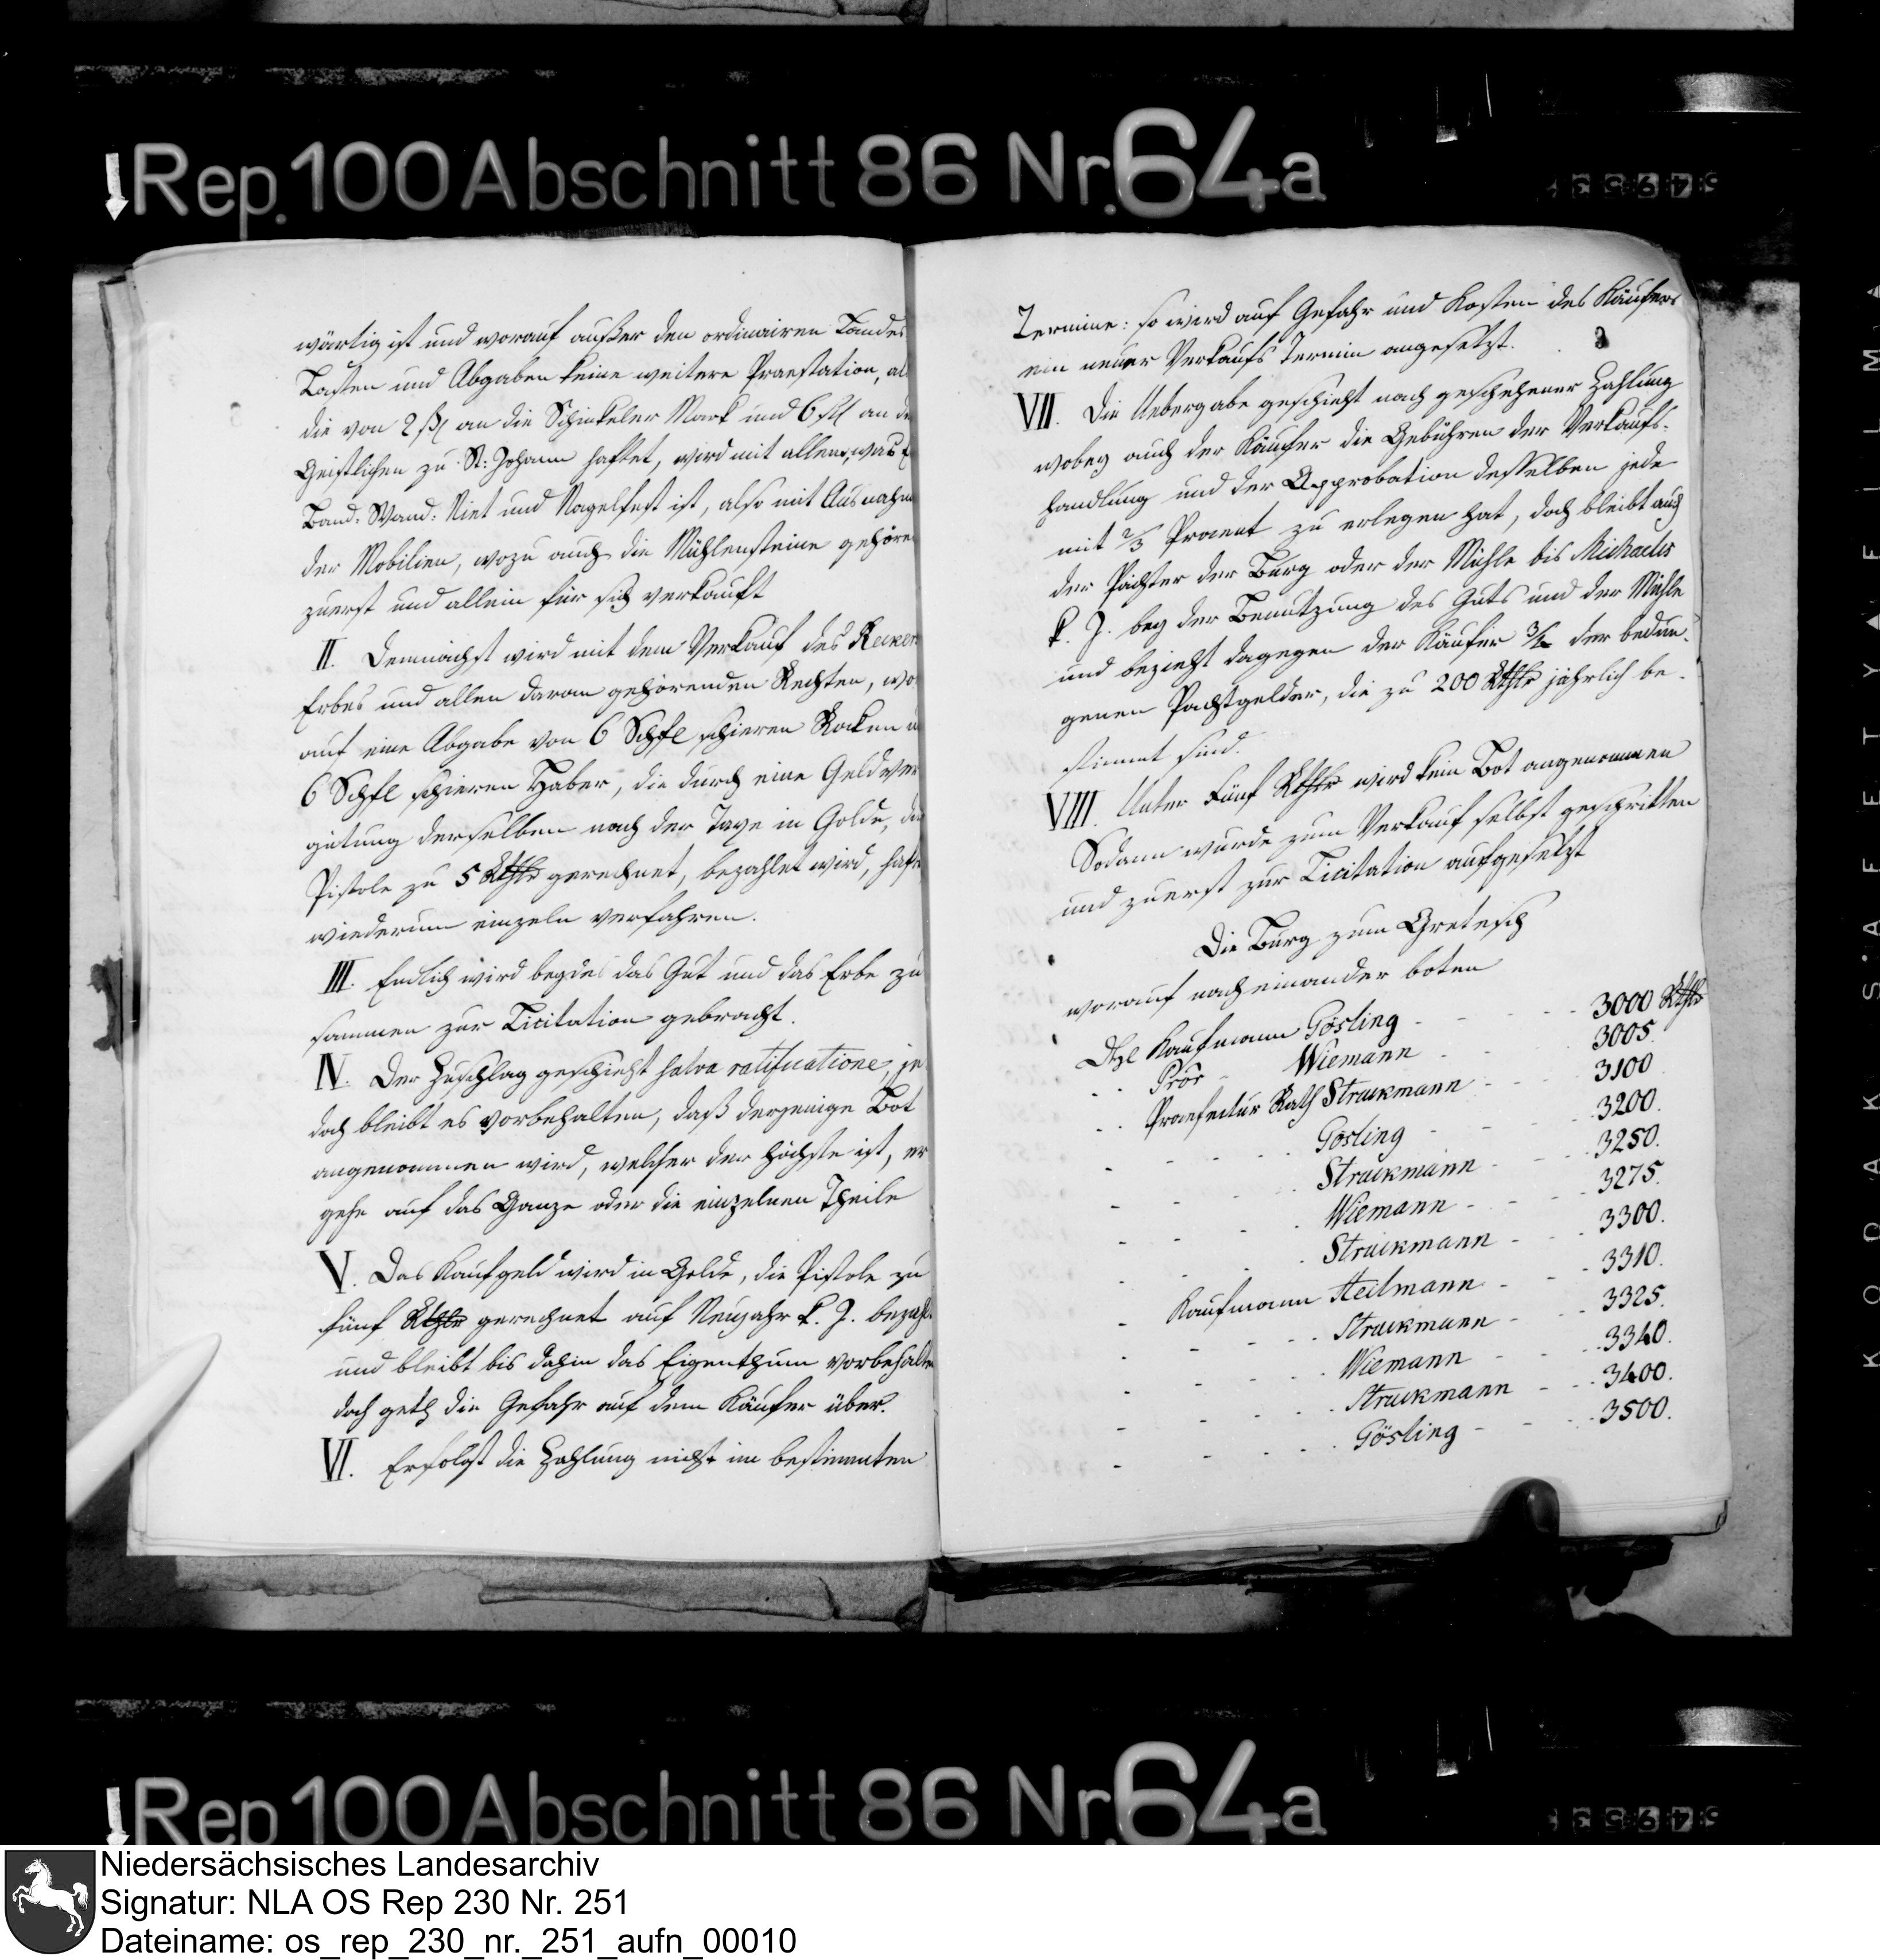 Rep. 100 Abschnitt 86 Nr. 64a
wärtig ist und worauf außer den ordinairen Landes
Lasten und Abgaben keine weitere Praestation, al
die von 2 ßl an die Schinkeler Mark und 6 an de
Geistlichen zu St: Johann haftet, wird mit allem, was
Band- Wand- Niet und Nagelfest ist, also mit Ausnahm
der Mobilien, wozu auch die Mühlensteine gehöre
zuerst und allein für sich verkauft
II. Demnächst wird mit dem Verkauf des
Erbes und allen daran gehörenden Rechten, wo
auf eine Abgabe von 6 Schfl schieren Rocken u
6 Schfl schieren Haber, die durch eine Geldver
gütung derselben nach der Taxe in Golde, die
Pistole zu 5 Rthlr gerechnet, bezahlet wird, haft
wiederum einzeln verfahren.
III. Endlich wird beydes das Gut und das Erbe zu
sammen zur Licitation gebracht.
IV. Der Zuschlag geschieht salva ratificatione, je
doch bleibt es vorbehalten, daß derjenige Bot
angenommen wird, welcher der höchste ist, er
gehe auf das Ganze oder die einzelnen Theile
V. Das Kaufgeld wird in Golde, die Pistole zu
fünf Rthlr gerechnet auf Neujahr k. J. bezahl
und bleibt bis dahin das Eigenthum vorbehalten
doch geth die Gefahr auf dem Käufer über.
VI. Erfolgt die Zahlung nicht im bestimmten
Termine: so wird auf Gefahr und Kosten des Käufers
ein neuer Verkaufs Termin angesetzt.
VII. Die Uebergabe geschieht nach geschehener Zahlung
wobey auch der Käufer die Gebühren der Verkaufs-
handlung und der Approbation desselben jede
mit 2/3 Procent zu erlegen hat, doch bleibt auch
der Pächter der Burg oder der Mühle bis Michaelis
k. J. bey der Benutzung des Guts und der Mühle
und bezieht dagegen der Käufer 3/4 der bedun-
genen Pachtgelder, die zu 200 Rthlr jährlich be-
stimmt sind.
VIII. Unter Fünf Rthlr wird kein Bot angenommen
Sodann wurde zum Verkauf selbst geschritten
und zuerst zur Licitation aufgesetzt
Die Burg zum Gretesch
worauf nach einander boten
Kaufmann Gösling - - - 3000 Rthlr
- - Pror Wiemann - - - 3005.
- - Praefectur Rath Struckmann - - - 3100
- - - - Gösling - - - 3200.
- - - - Struckmann - - - 3250.
- - - - Wiemann - - - 3275.
- - - - Struckmann - - - 3300.
- Kaufmann Heilmann - - - 3310.
- - - - Struckmann - - - 3325.
- - - - Wiemann - - - 3340.
- - - - Struckmann - - - 3400.
- - - - Gösling - - - 3500.
KODAK SAFETY FILM
Rep 100 Abschnitt 86 Nr. 64a
Niedersächsisches Landesarchiv
Signatur: NLA OS Rep 230 Nr. 251
Dateiname: os_rep_230_nr._251_aufn_00010